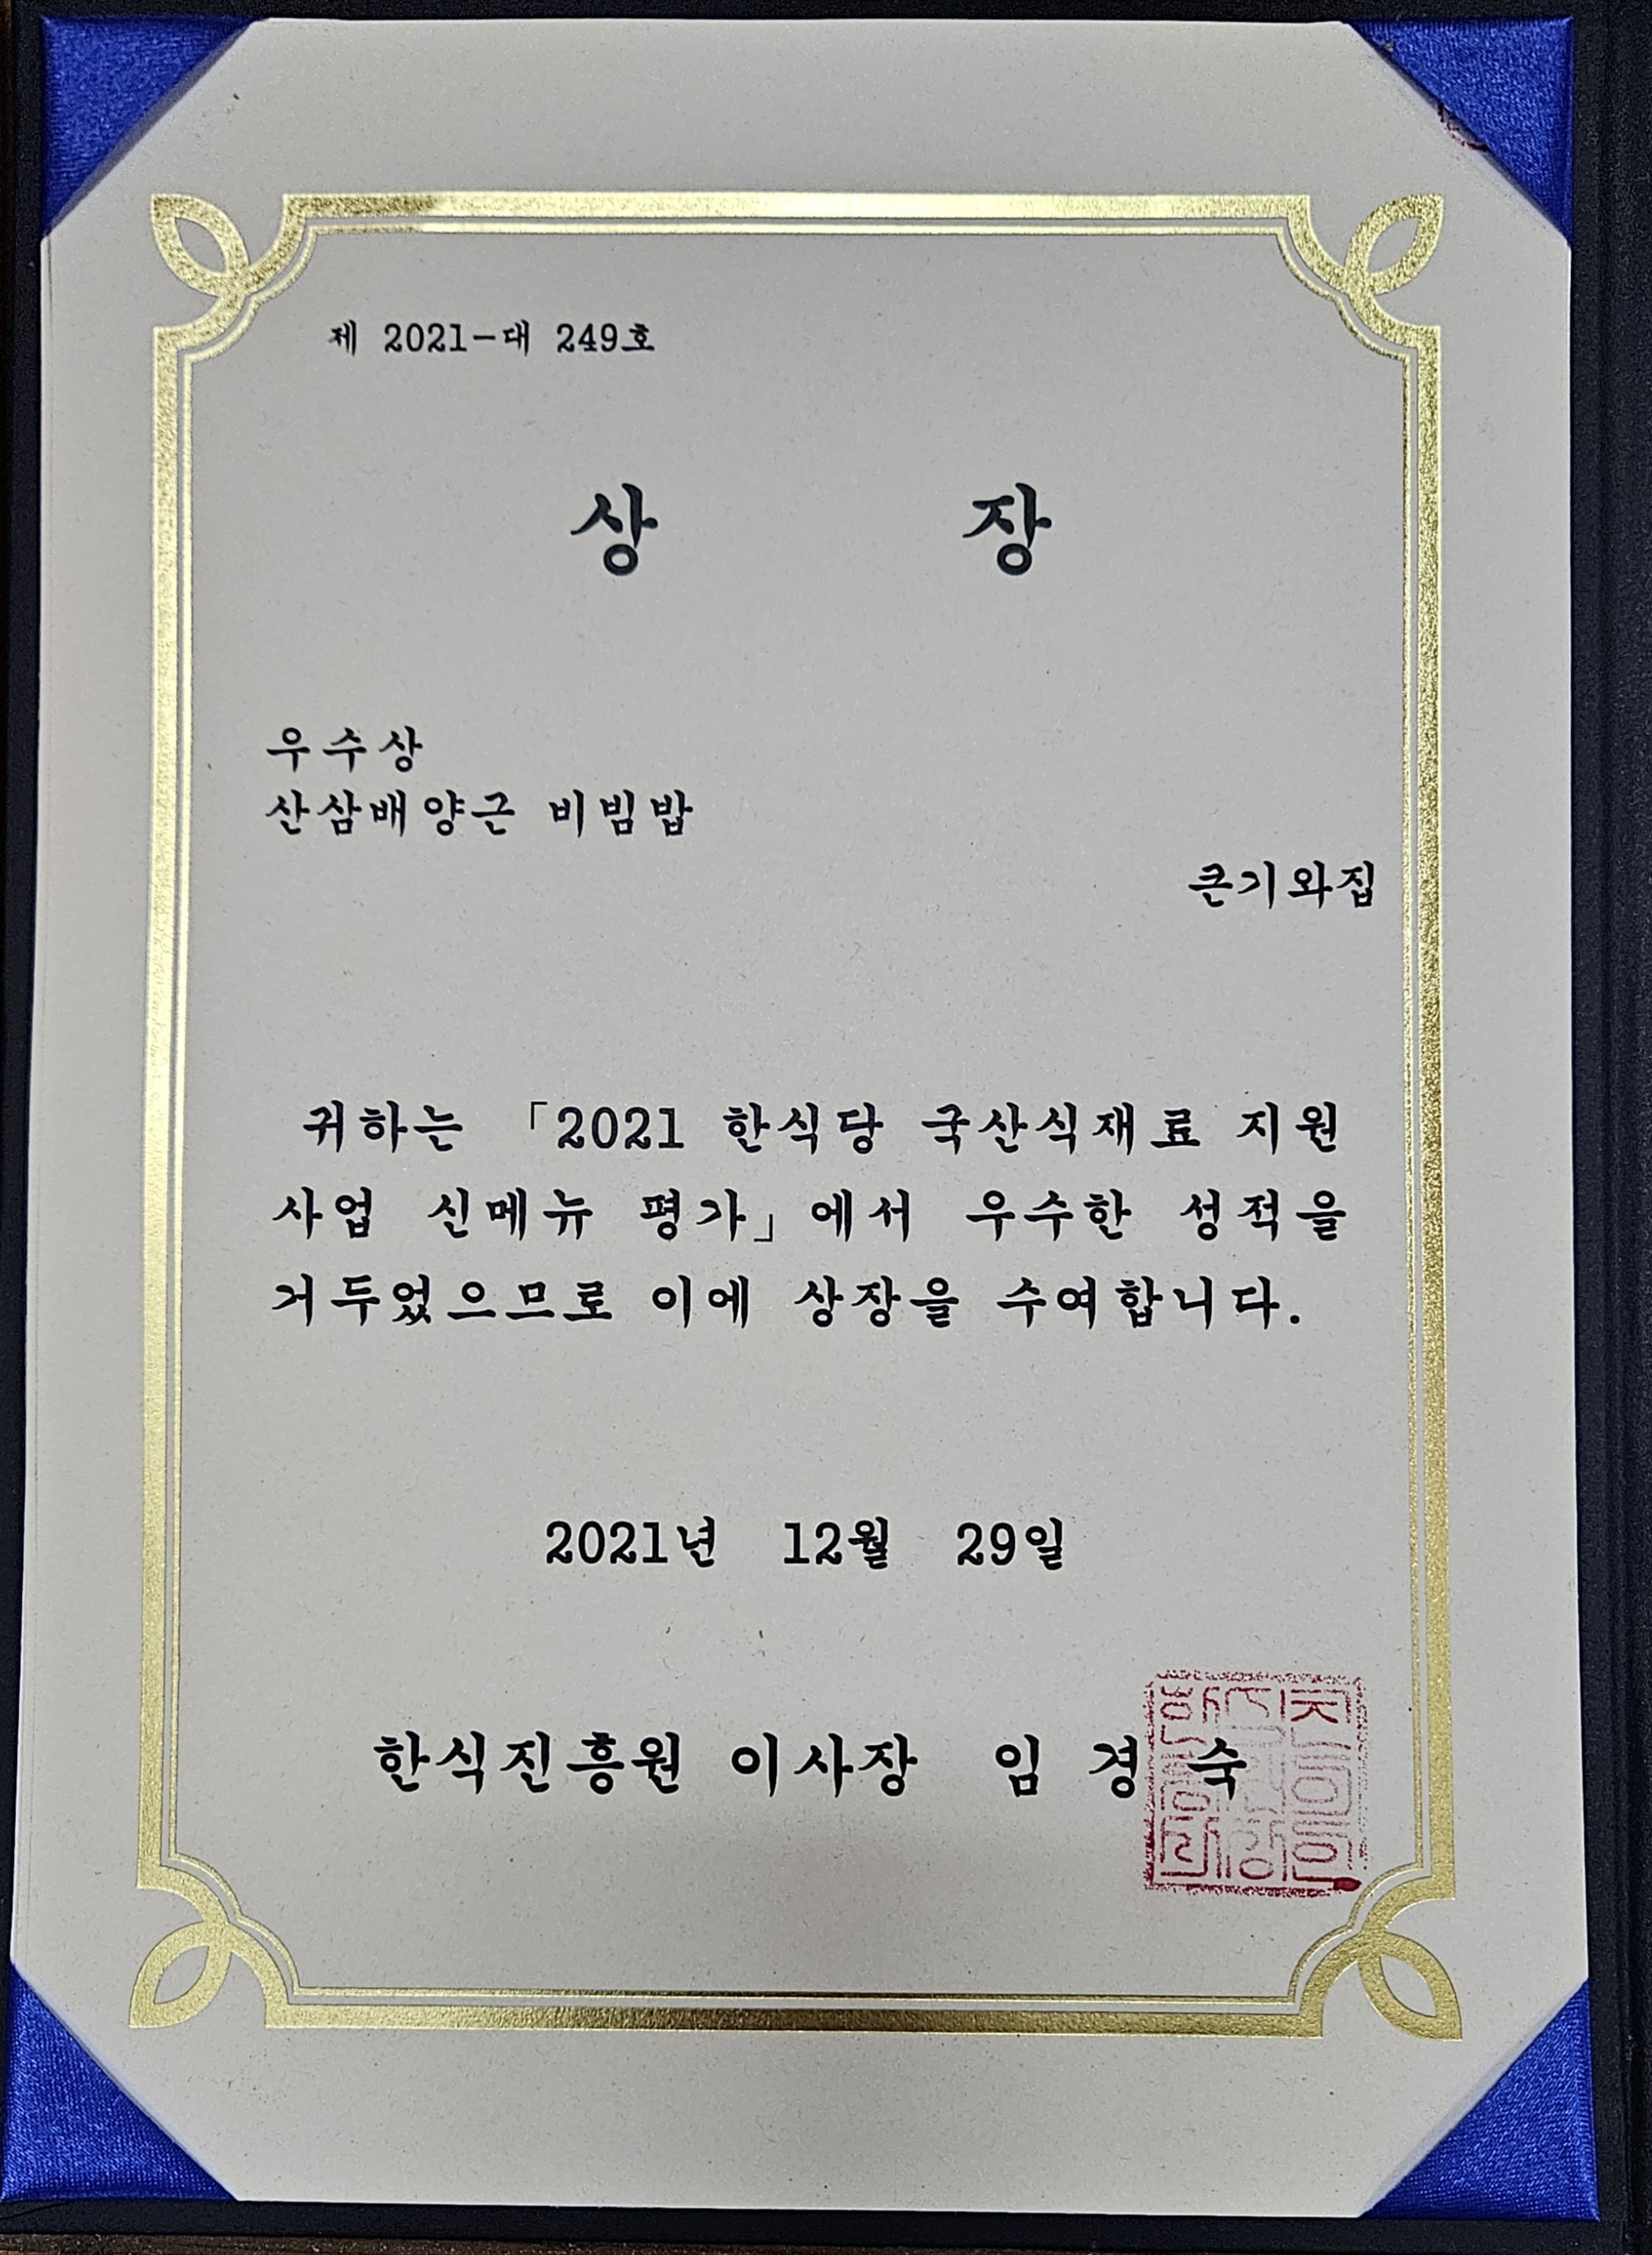 제 2021-대 249호
상 장
우수상
산삼배양근 비빔밥
큰기와집
귀하는 「2021 한식당 국산식재료 지원
사업 신메뉴 평가」에서 우수한 성적을
거두었으므로 이에 상장을 수여합니다.
2021년 12월 29일
한식진흥원 이사장 임 경 숙